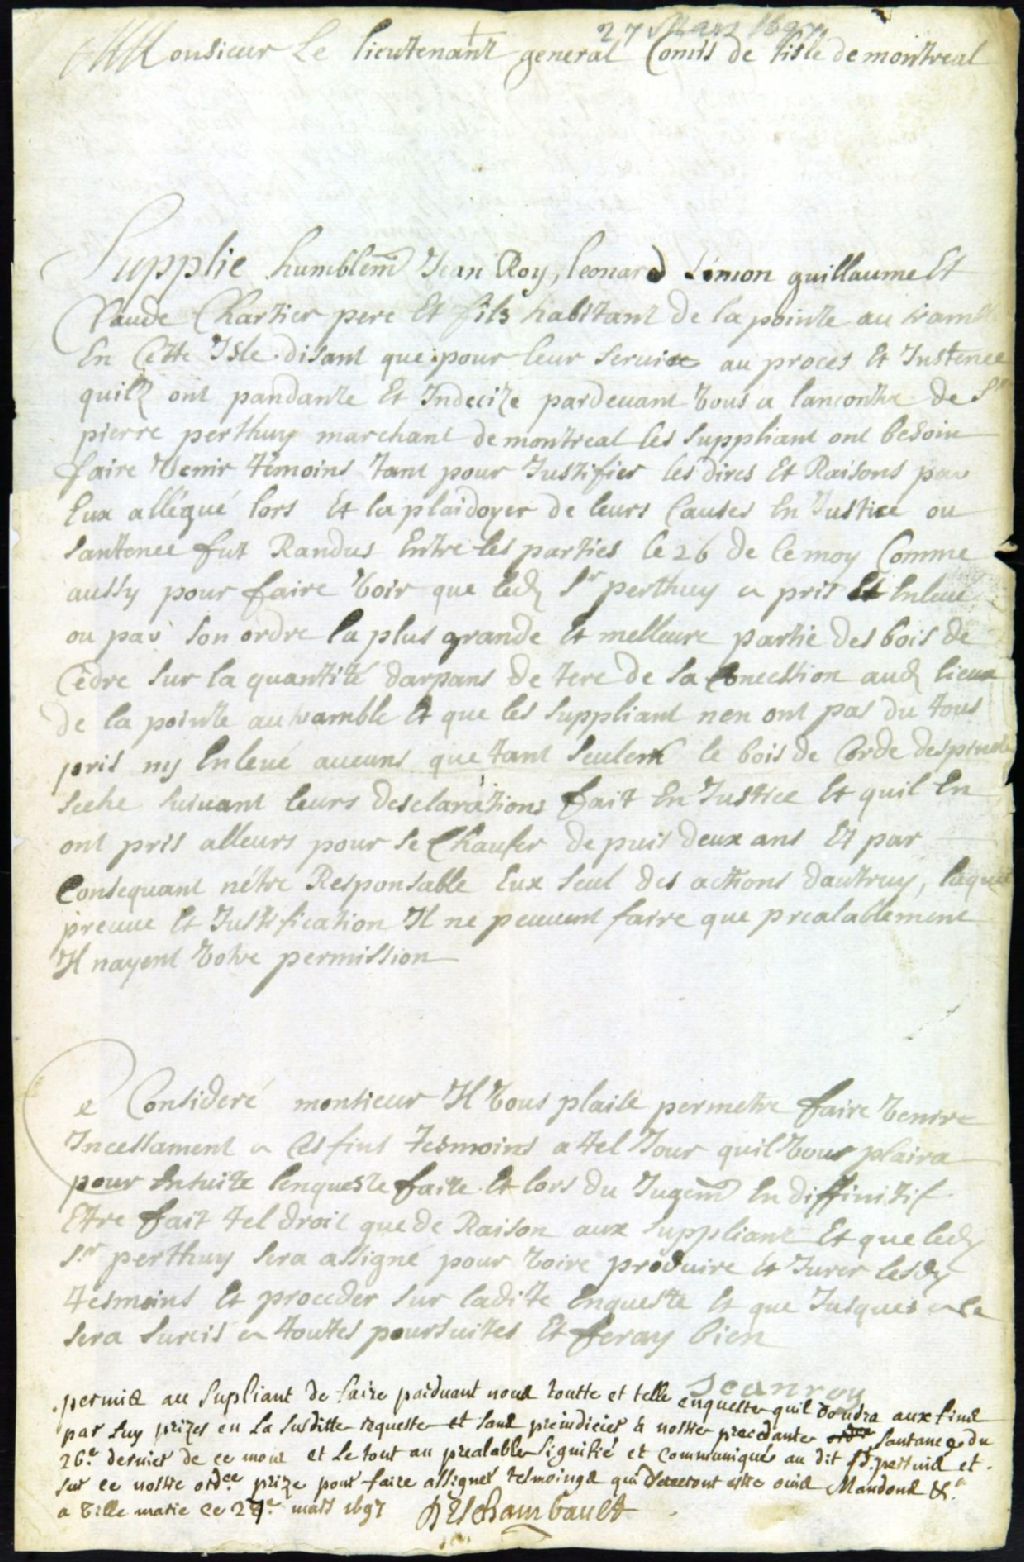 27 Mars 1697
Monsieur Le lieutenant general Comis de lisle de montreal
Supplie humblem̃t Jean Roy, leonard Simon guillaume Et
Claude Chartier pere Et fils habitant de la pointe au tramble
En Cette Isle disant que pour leur service au proces Et Instence
quilz ont pandante Et Indecize pardevant vous a lancontre de Sr
pierre perthuy marchant de montreal les suppliant ont besoin
faire venir témoins tant pour Justifier les dires Et Raisons par
Eux allégué lors Et la plaidoyer de leurs Causes En Justice ou
santence fut Randus Entre les parties le 26 de ce moy Comme
aussy pour faire voir que ledt Sr perthuy a pris Et Enlevé
ou par son ordre la plus grande Et melleure partie des bois de
Cedre sur la quantité darpans de tere de sa Concession audt lieux
de la pointe au tramble Et que les suppliant nen ont pas du tous
pris ny Enlevé aucuns que tant seulemt le bois de Corde
seche suivant leurs desclarations fait En Justice Et quil En
ont pris alleurs pour se Chaufer depuis deux ans Et par
Consequant nétre Responsable Eux seul des actions dautruy, laquel
preuve Et Justification Il ne peuvent faire que prealablement
Il nayent votre permission
Ce Consideré monsieur Il vous plaise permetre faire venire
Incessament a Ces fins tesmoins a tel Jour quil vous plaira
pour Ensuite lenqueste faite Et lors du Jugemt En diffinitif
Etre fait tel droit que de Raison aux suppliant Et que ledt
Sr perthuy sera assigné pour voire produire Et Jurer lesdt
tesmoins Et proceder sur ladite Enqueste Et que Jusques a ce
sera surcis a toutes poursuites Et feray bien
jean roy
permis au Supliant de faire pardevant nous toutte et telle enqueste quil voudra aux fins
par luy prizes en La susditte requeste et sans preiudicier a nostre precedante santance du
26e dernier de ce mois et Le tout au prealable signifié et communiqué au dit Sr pertuis et
sur ce nostre ordce prize pour faire assigner tesmoings qui Mandons &a
a Ville marie ce 27e mars 1697 Deschambault